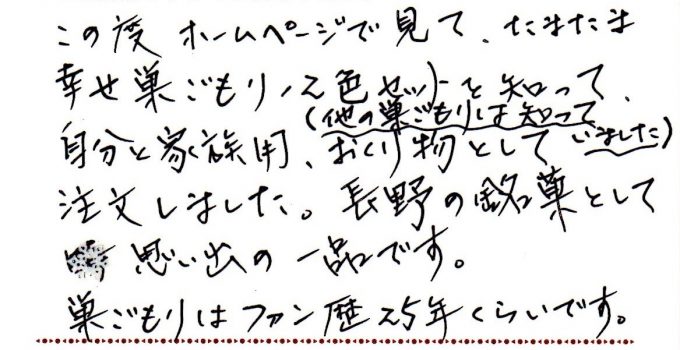 この度 ホームページで見て、たまたま
幸せ巣ごもり2色セットを知って、
(他の巣ごもりは知って
いました)
自分と家族用、おくり物として
注文しました。長野の銘菓として
思い出の一品です。
巣ごもりはファン歴25年くらいです。